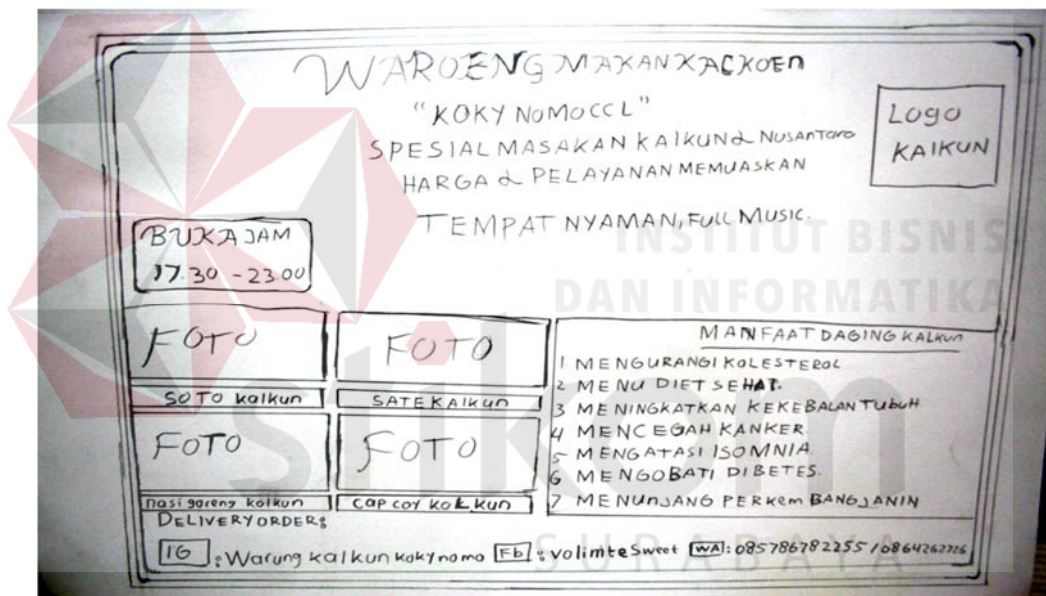 WAROENG MAKAN KALKOEN
"KOKY NOMOCCL"
SPESIAL MASAKAN KALKUN & NUSANTARA
HARGA & PELAYANAN MEMUASKAN
TEMPAT NYAMAN, FULL MUSIC.
LOGO
KALKUN
BUKA JAM
17.30 - 23.00
INSTITUT BISNIS
DAN INFORMATIKA
stikom
SURABAYA
FOTO
SOTO kalkun
FOTO
SATE KALKUN
FOTO
nasi goreng kalkun
FOTO
CAP COY KALKUN
MANFAAT DAGING KALKUN
1 MENGURANGI KOLESTEROL
2 MENU DIET SEHAT.
3 MENINGKATKAN KEKEBALAN TUBUH
4 MENCEGAH KANKER
5 MENGATASI ISOMNIA
6 MENGOBATI DIBETES.
7 MENUNJANG PERKEMBANGJANIN
DELIVERY ORDER:
IG : Warung kalkun kokynomo Fb : volimte Sweet WA : 085786782255 /